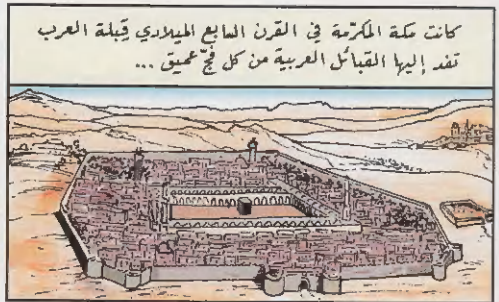 كانت مكة المكرّمة في القرن السابع الميلادي قِبلة العرب
تفد إليها القبائل العربية من كل فجّ عميق ...